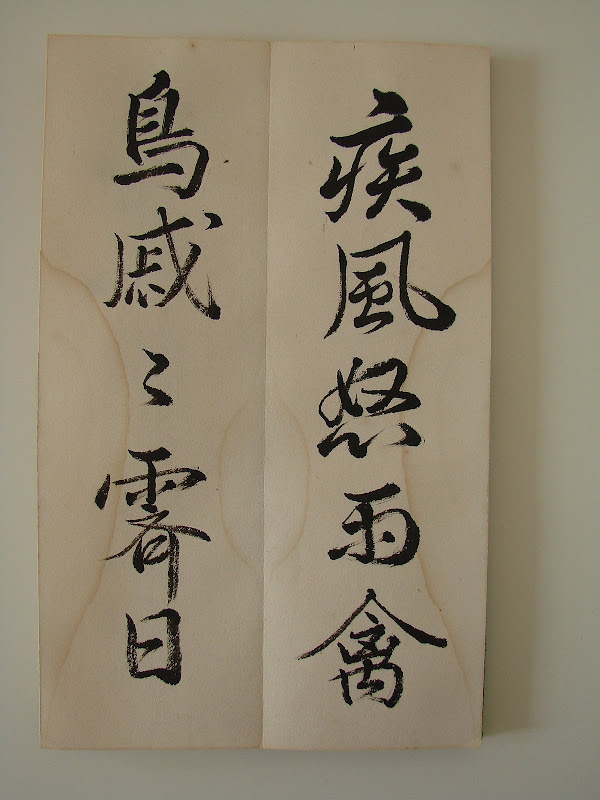 疾風怒雨禽
鳥戚〻霽日